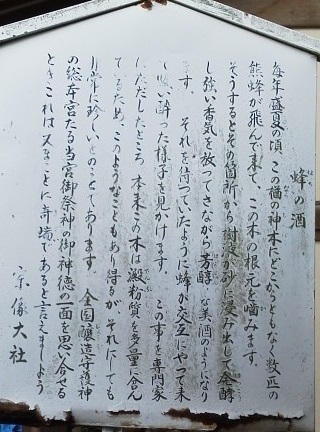 蜂の酒
毎年盛夏の頃、この楢の神木にどこからともなく数匹の
熊蜂が飛んで来て、この木の根元を噛みます。
そうするとその箇所から樹液が砂に浸み出して発酵
し強い香気を放ってさながら芳醇な美酒のようになり
ます。それを待っていたように蜂が交互にやって来
い酔った様子を見かけます。この事を専門家
にただしたところ、本来この木は澱粉質を多量に含ん
でいるため、このようなこともあり得るが、それにしても
非常に珍しいとのことであります。全国醸造守護神
の総本宮たる当宮御祭神の御神徳の一面を思い合せる
ときこれはまことに奇瑞であると言えましょう
宗像大社